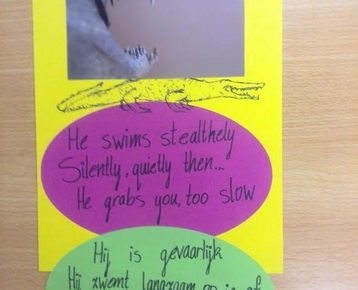 He swims stealthely
Silently, quietly then...
He grabs you, too slow
Hij is gevaarlijk
Hij zwemt langzaam op je af